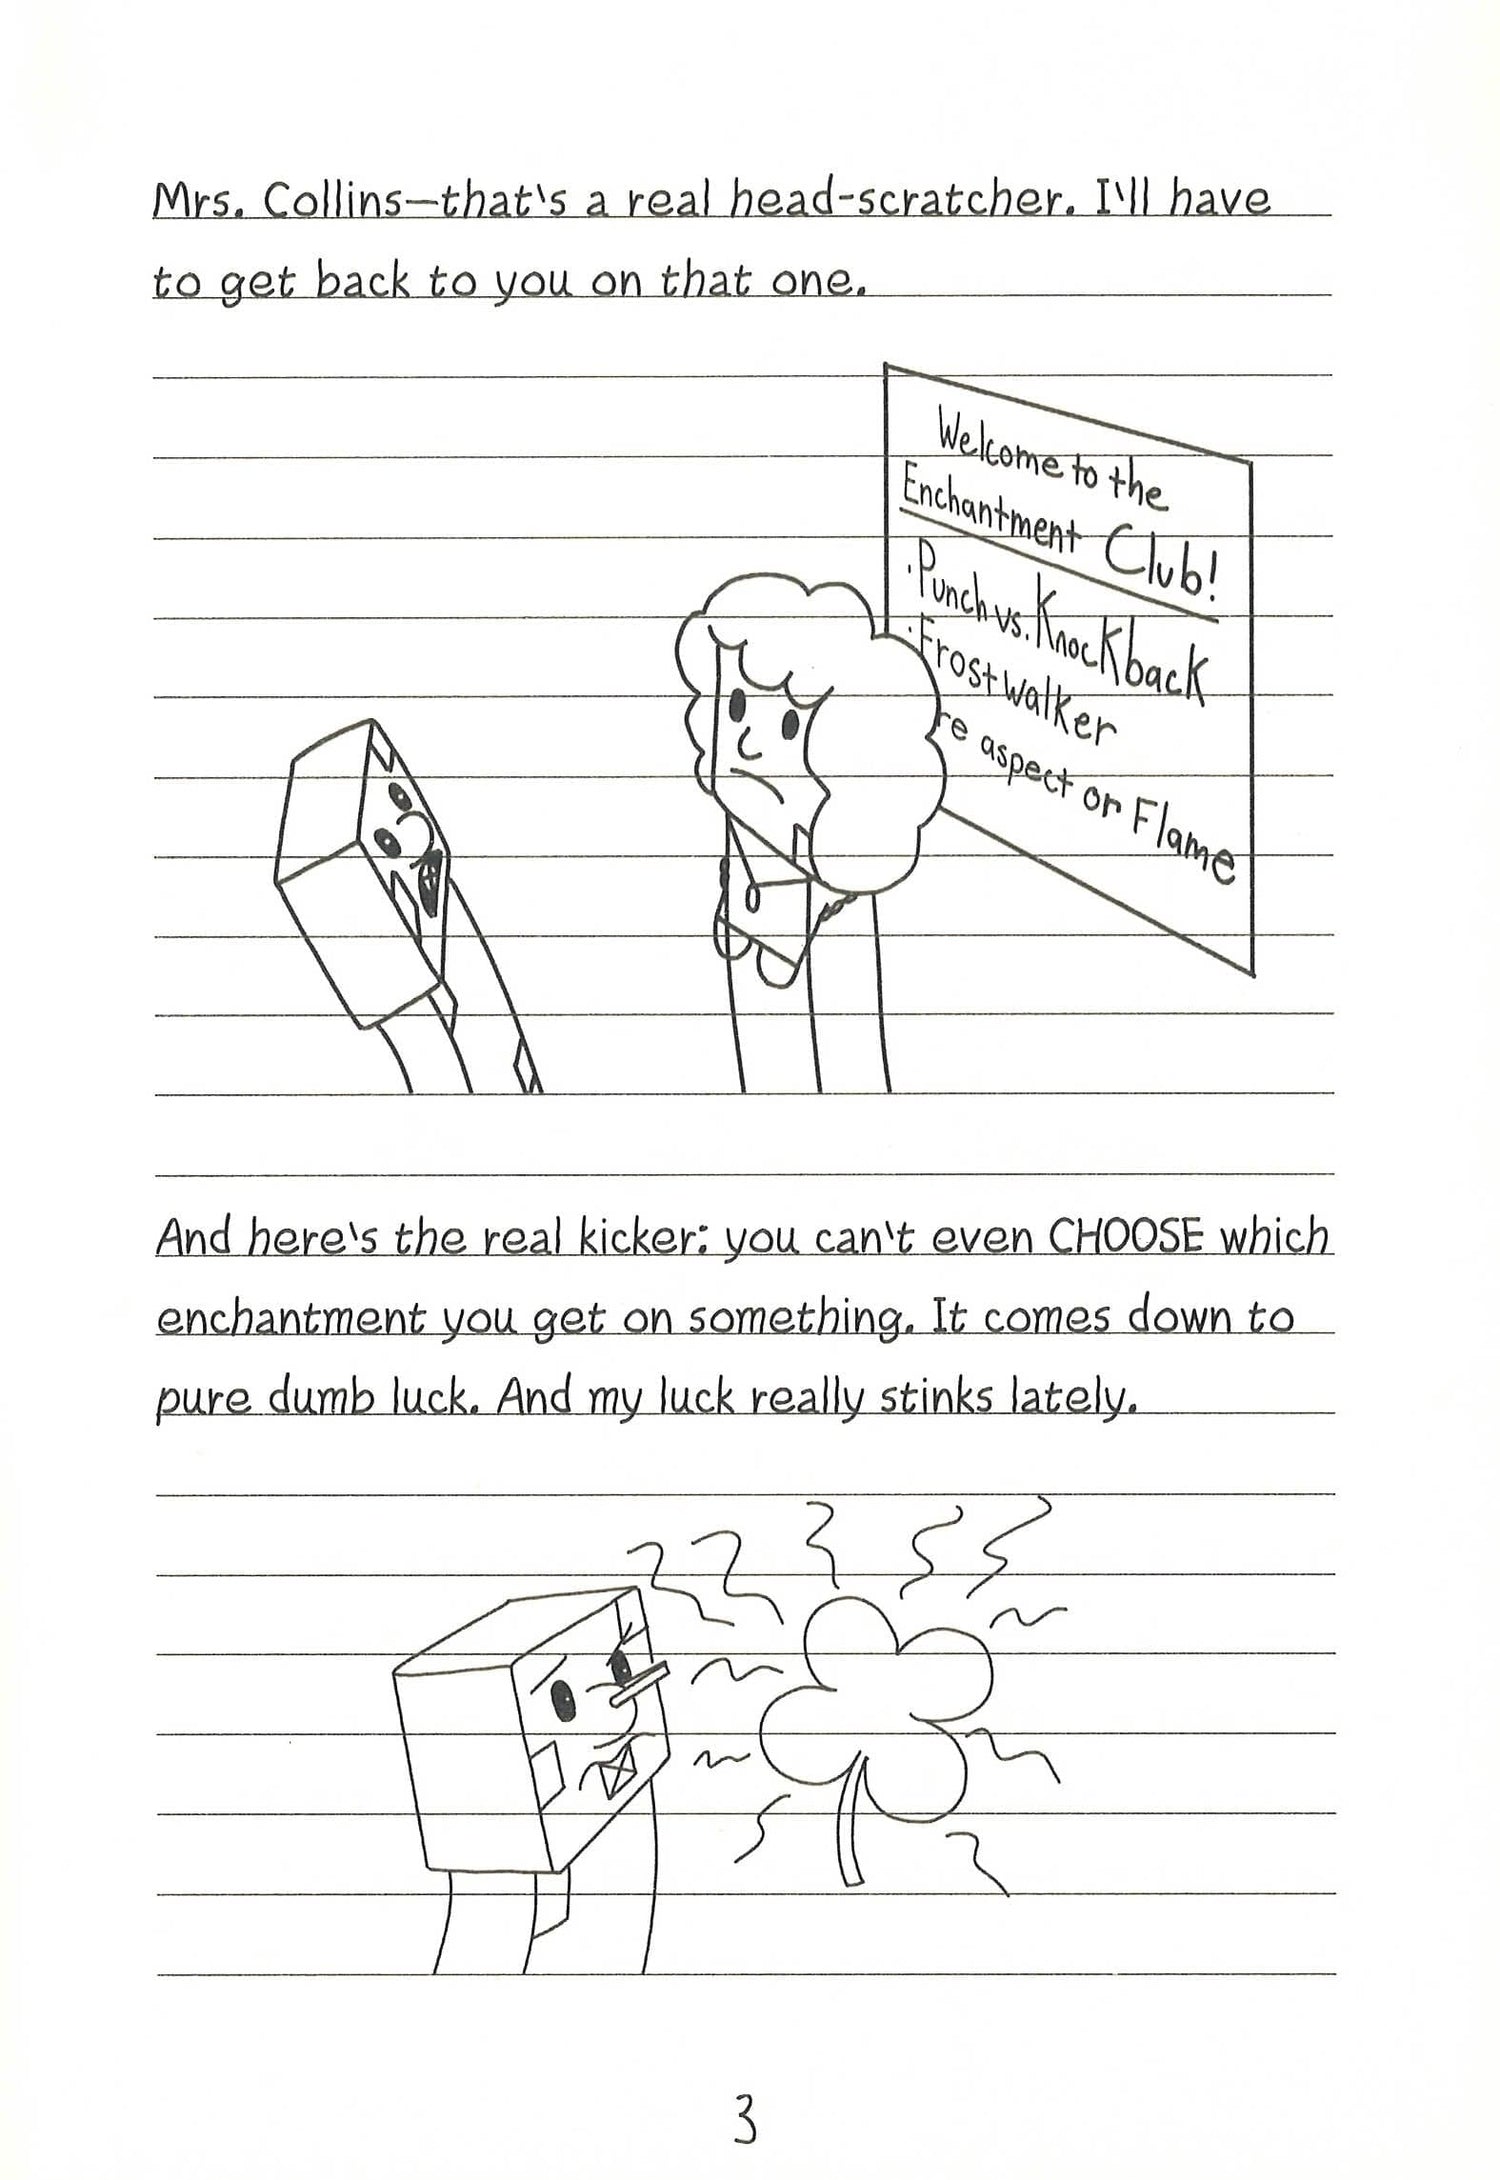 Mrs. Collins—that's a real head-scratcher. I'll have
to get back to you on that one.
Welcome to the
Enchantment Club!
·Punch vs. Knockback
·Frostwalker
re aspect or Flame
And here's the real kicker: you can't even CHOOSE which
enchantment you get on something. It comes down to
pure dumb luck. And my luck really stinks lately.
3